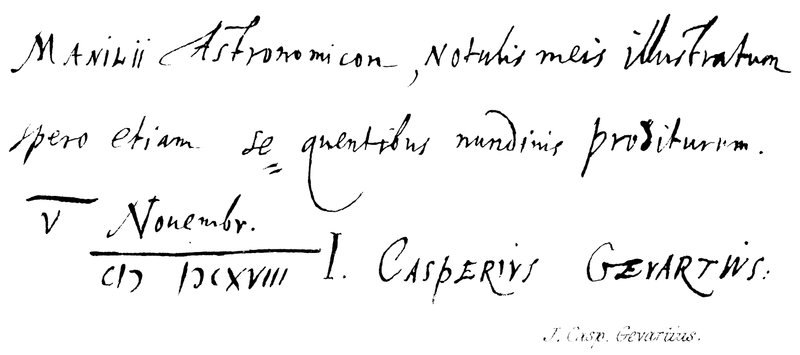 MANILII Astronomicon, Notulis meis illustratum
spero etiam se quentibus nundinis proditurum.
V Nouembr.
CIↃ IↃCXVIII I. CASPERIVS GEVARTIVS:
J. Casp. Gevartius.